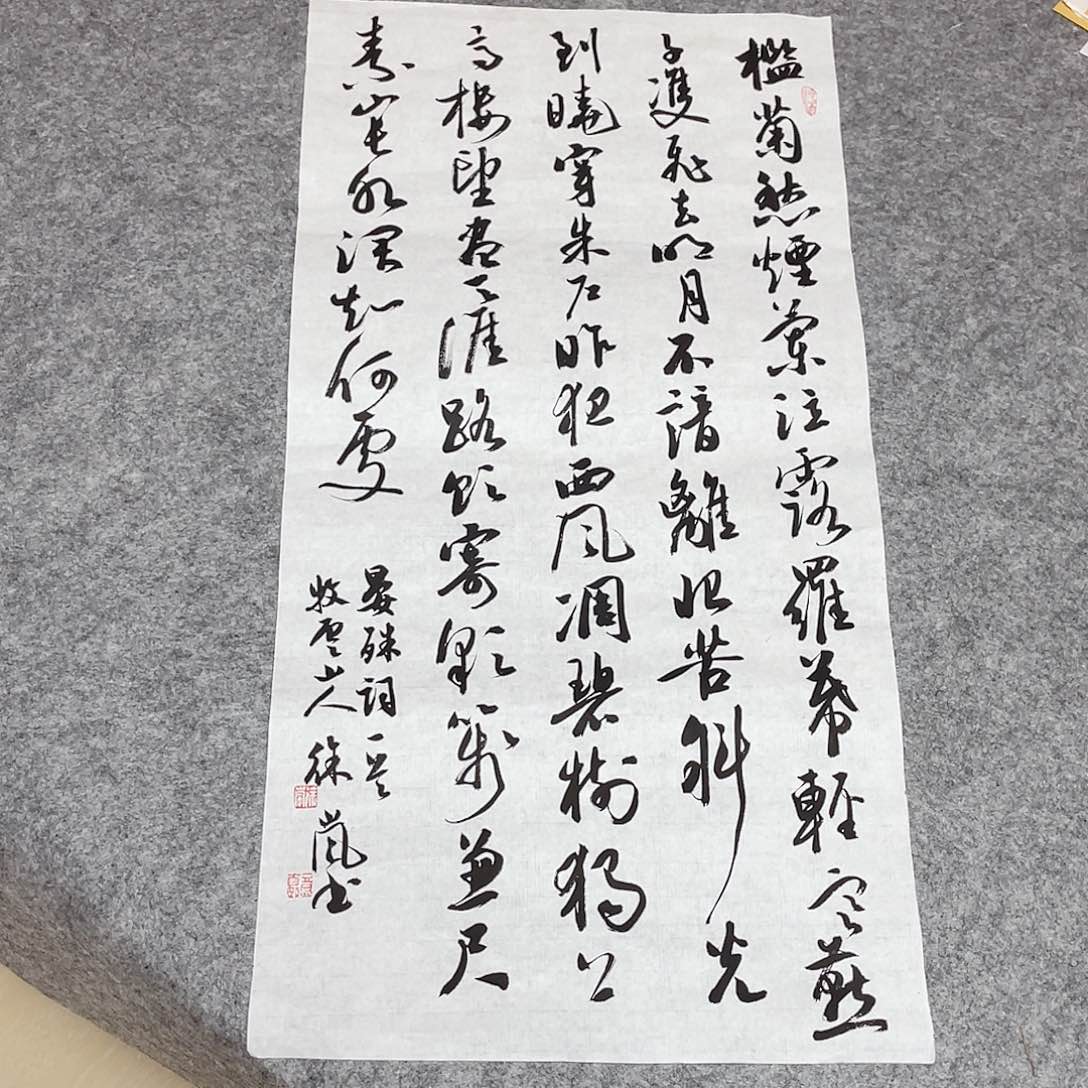 檻菊愁煙蘭泣露羅幕輕寒燕
子雙飛去明月不諳離恨苦斜光
到曉穿朱戶昨夜西風凋碧樹獨上
高樓望盡天涯路欲寄彩箋兼尺
素山長水闊知何處
晏殊詞一首
牧雲山人徐嵐書